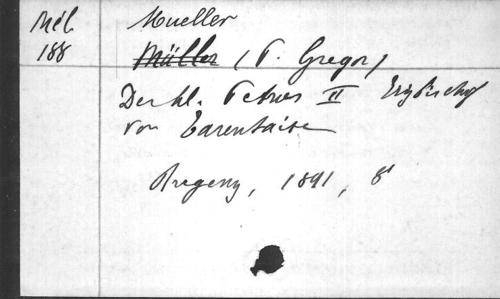 Mél. Mueller
188 Müller (P. Gregor)
Der hl. Petrus II Erzbischof
von Tarentaise
Bregenz, 1891, 8°